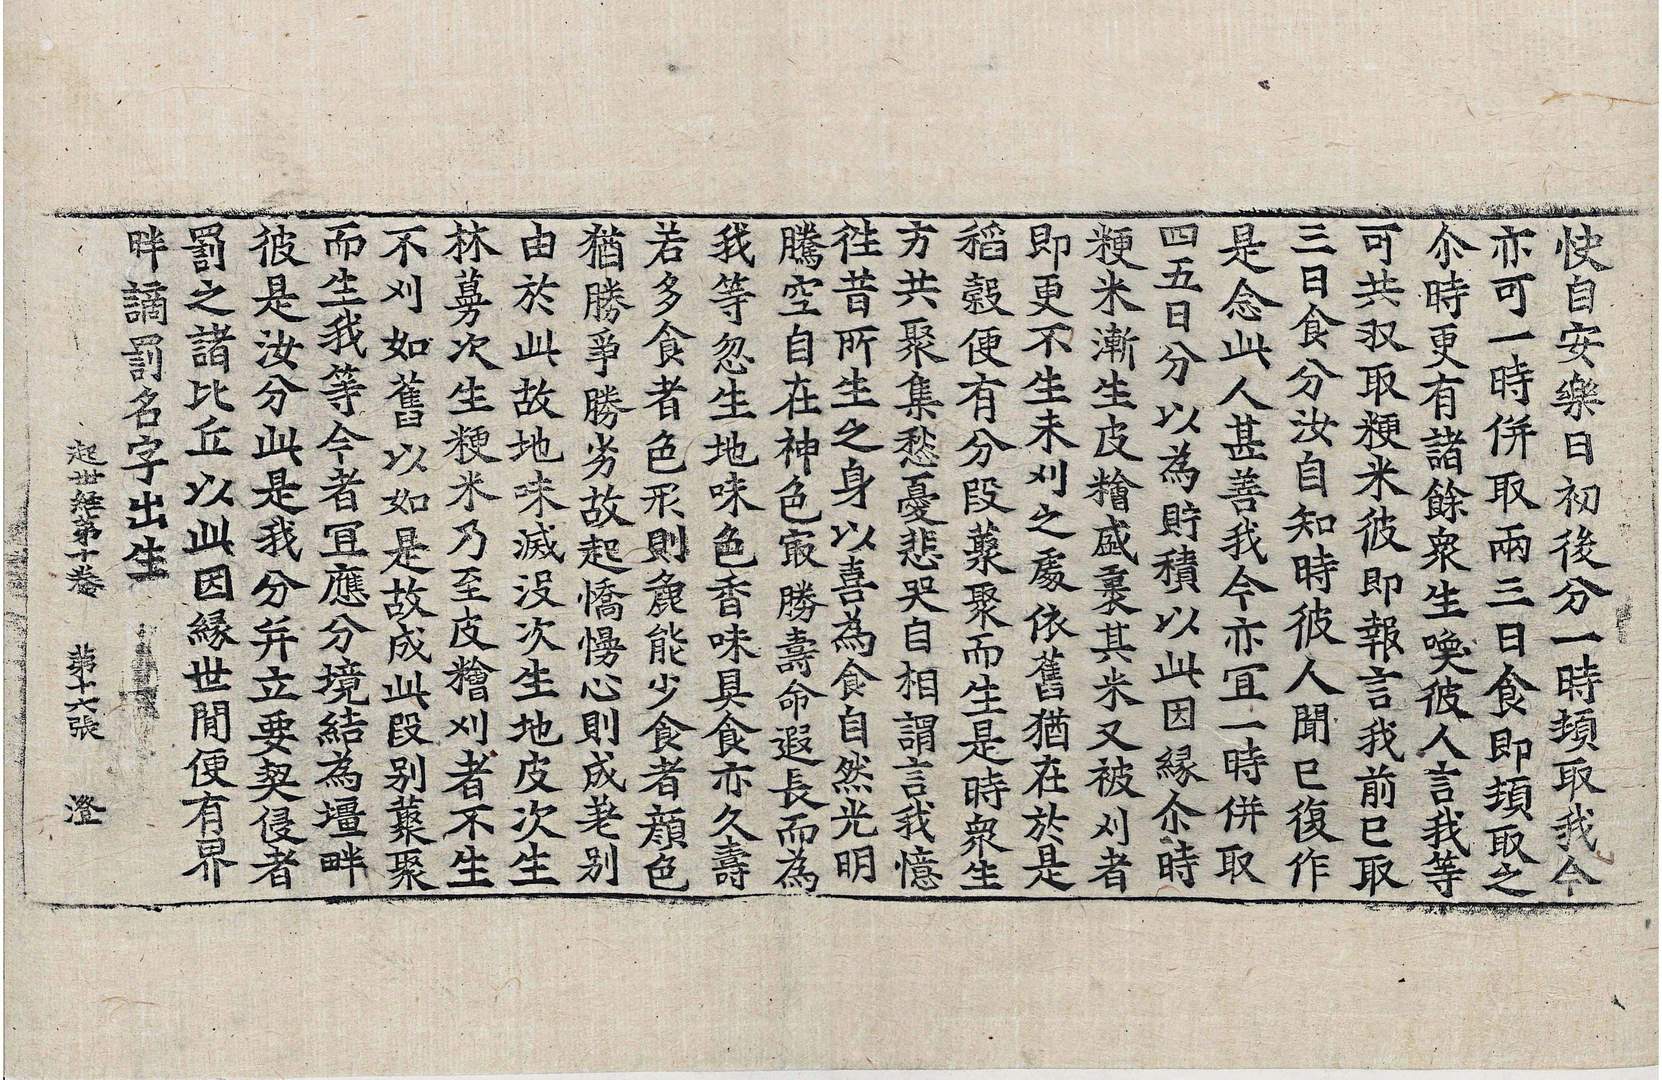 快自安樂日初後分一時頓取我今
亦可一時併取兩三日食即頓取之
尒時更有諸餘衆生喚彼人言我等
可共収取粳米彼即報言我前已取
三日食分汝自知時彼人聞已復作
是念此人甚善我今亦冝一時併取
四五日分以為貯積以此因縁尒時
粳米漸生皮糩盛裹其米又被刈者
即更不生未刈之處依舊猶在於是
稻糓便有分段藂聚而生是時衆生
方共聚集愁憂悲哭自相謂言我憶
徃昔所生之身以喜為食自然光明
騰空自在神色㝡勝壽命遐長而為
我等忽生地味色香味具食亦久壽
若多食者色形則麁能少食者顔色
猶勝爭勝劣故起憍慢心則成差別
由於此故地味滅没次生地皮次生
林蔓次生粳米乃至皮糩刈者不生
不刈如舊以如是故成此段別藂聚
而生我等今者冝應分境結為壃畔
彼是汝分此是我分并立要契侵者
罰之諸比丘以此因縁世閒便有界
畔謫罰名字出生
起世経第十卷　第十六張　澄